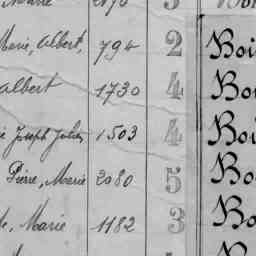 Marie, Albert, 794 2 Boi
Albert 1730 4 Bo
Joseph Jules 1503 4 Boi
Pierre, Marie 2080 5 Bo
Marie 1182 3 Bo